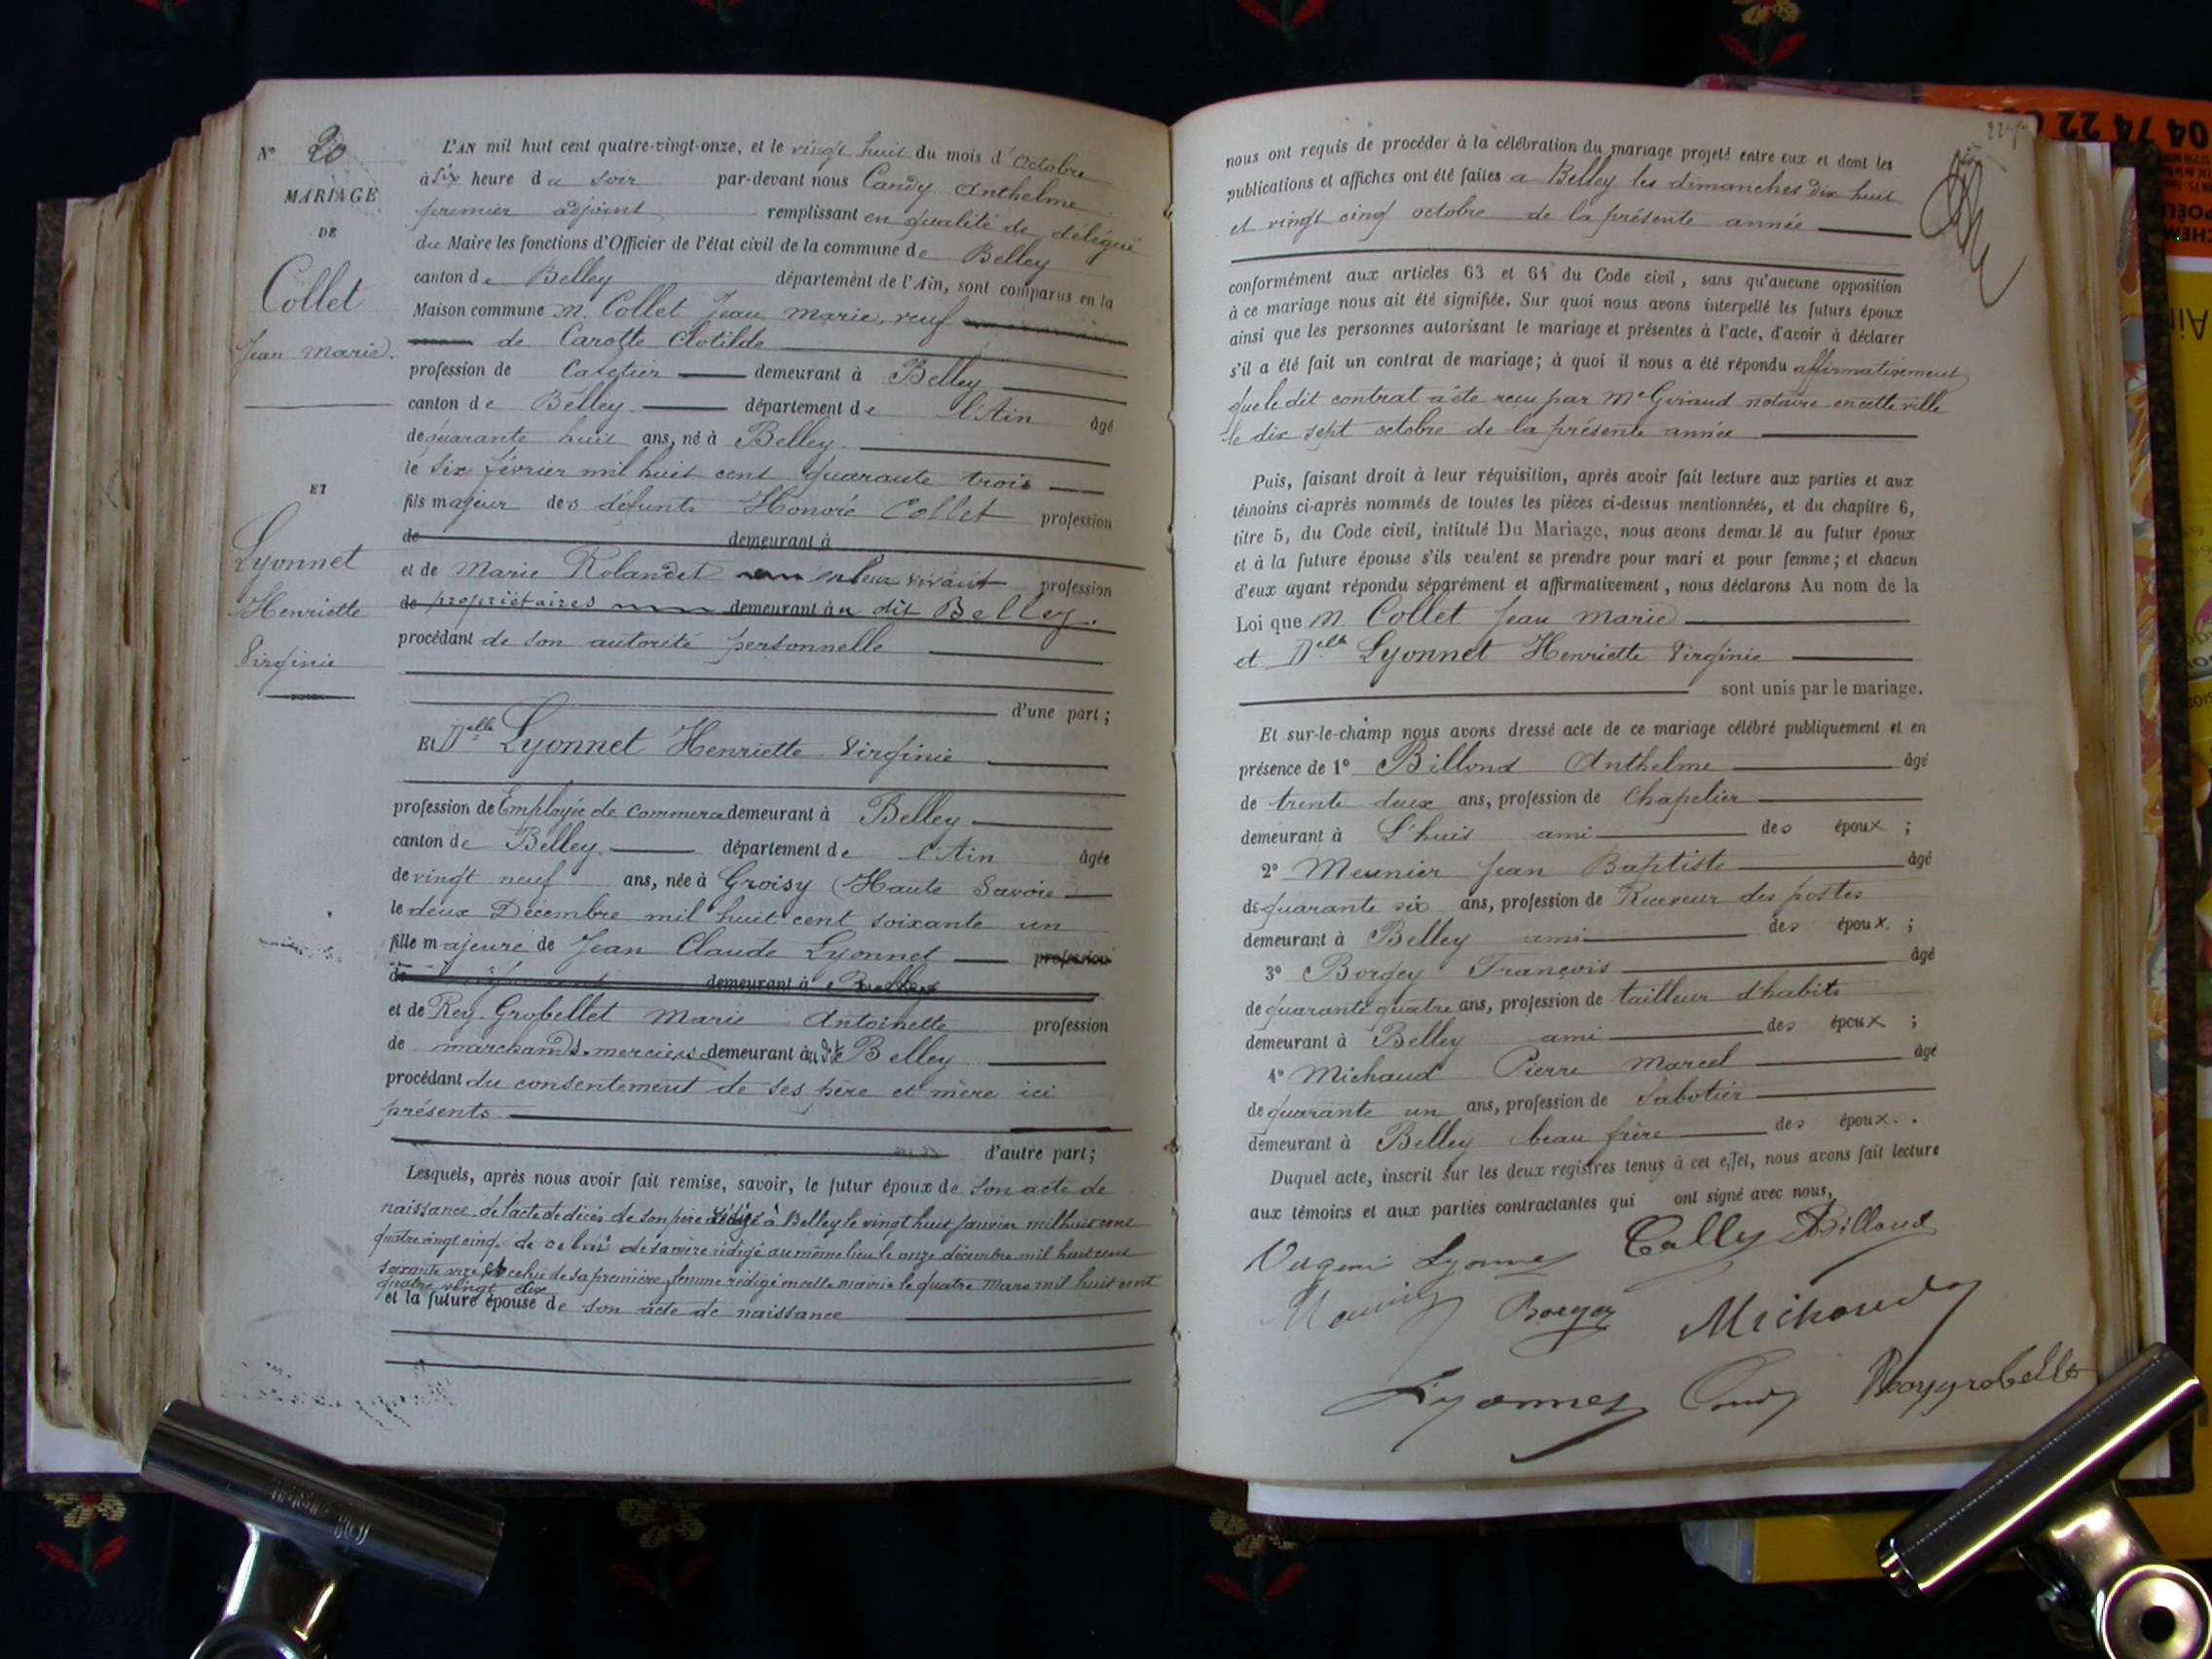 N° 20
MARIAGE
DE
Collet
Jean Marie.
ET
Lyonnet
Henriette
Virginie
L'AN mil huit cent quatre-vingt-onze, et le vingt huit du mois d'Octobre
à six heure du soir par-devant nous Candy Anthelme
premier adjoint remplissant en qualité de délégué
du Maire les fonctions d'Officier de l'état civil de la commune de Belley
canton de Belley département de l'Ain, sont comparus en la
Maison commune M. Collet Jean Marie, veuf
de Carotte Clotilde
profession de Cafetier demeurant à Belley
canton de Belley département de l'Ain âgé
de quarante huit ans, né à Belley
le six février mil huit cent quarante trois
fils majeur des défunts Honoré Collet profession
de demeurant à
et de Marie Rolandet en leur vivant profession
de propriétaires demeurant à u dit Belley.
procédant de son autorité personnelle
d'une part;
Et Delle Lyonnet Henriette Virginie
profession de Employée de commerce demeurant à Belley
canton de Belley département de l'Ain âgée
de vingt neuf ans, née à Groisy (Haute Savoie
le deux Décembre mil huit cent soixante un
fille majeure de Jean Claude Lyonnet profession
de demeurant à
et de Rey-Grobellet Marie Antoinette profession
de marchands-merciers demeurant au dit Belley
procédant du consentement de ses père et mère ici
présents
d'autre part;
Lesquels, après nous avoir fait remise, savoir, le futur époux de son acte de
naissance de l'acte de décès de son père rédigé à Belley le vingt huit janvier mil huit cent
quatre vingt cinq. de celui de sa mère rédigé au même lieu le onze décembre mil huit cent
soixante et celui de sa première femme rédigé en cette mairie le quatre Mars mil huit cent
quatre vingt dix
et la future épouse de son acte de naissance
nous ont requis de procéder à la célébration du mariage projeté entre eux et dont les
publications et affiches ont été faites a Belley les dimanches dix huit
et vingt cinq octobre de la présente année
conformément aux articles 63 et 64 du Code civil, sans qu'aucune opposition
à ce mariage nous ait été signifiée. Sur quoi nous avons interpellé les futurs époux
ainsi que les personnes autorisant le mariage et présentes à l'acte, d'avoir à déclarer
s'il a été fait un contrat de mariage; à quoi il nous a été répondu affirmativement
que le dit contrat a été reçu par Me Giraud notaire en cette ville
le dix sept octobre de la présente année
Puis, faisant droit à leur réquisition, après avoir fait lecture aux parties et aux
témoins ci-après nommés de toutes les pièces ci-dessus mentionnées, et du chapitre 6,
titre 5, du Code civil, intitulé Du Mariage, nous avons demandé au futur époux
et à la future épouse s'ils veulent se prendre pour mari et pour femme; et chacun
d'eux ayant répondu séparément et affirmativement, nous déclarons Au nom de la
Loi que M. Collet Jean Marie
et Delle Lyonnet Henriette Virginie
sont unis par le mariage.
Et sur-le-champ nous avons dressé acte de ce mariage célébré publiquement et en
présence de 1° Billond Anthelme âgé
de trente deux ans, profession de Chapelier
demeurant à L'huis ami des époux;
2° Meunier Jean Baptiste âgé
de quarante six ans, profession de Receveur des postes
demeurant à Belley ami des époux;
3° Borgey François âgé
de quarante quatre ans, profession de tailleur d'habits
demeurant à Belley ami des époux;
4° Michaud Pierre Marcel âgé
de quarante un ans, profession de Sabotier
demeurant à Belley beau frère des époux.
Duquel acte, inscrit sur les deux registres tenus à cet effet, nous avons fait lecture
aux témoins et aux parties contractantes qui ont signé avec nous,
Lyonnet Billoud
Borgey Michaud
Lyonnet Candy Reygrobellet
04 74 22 0